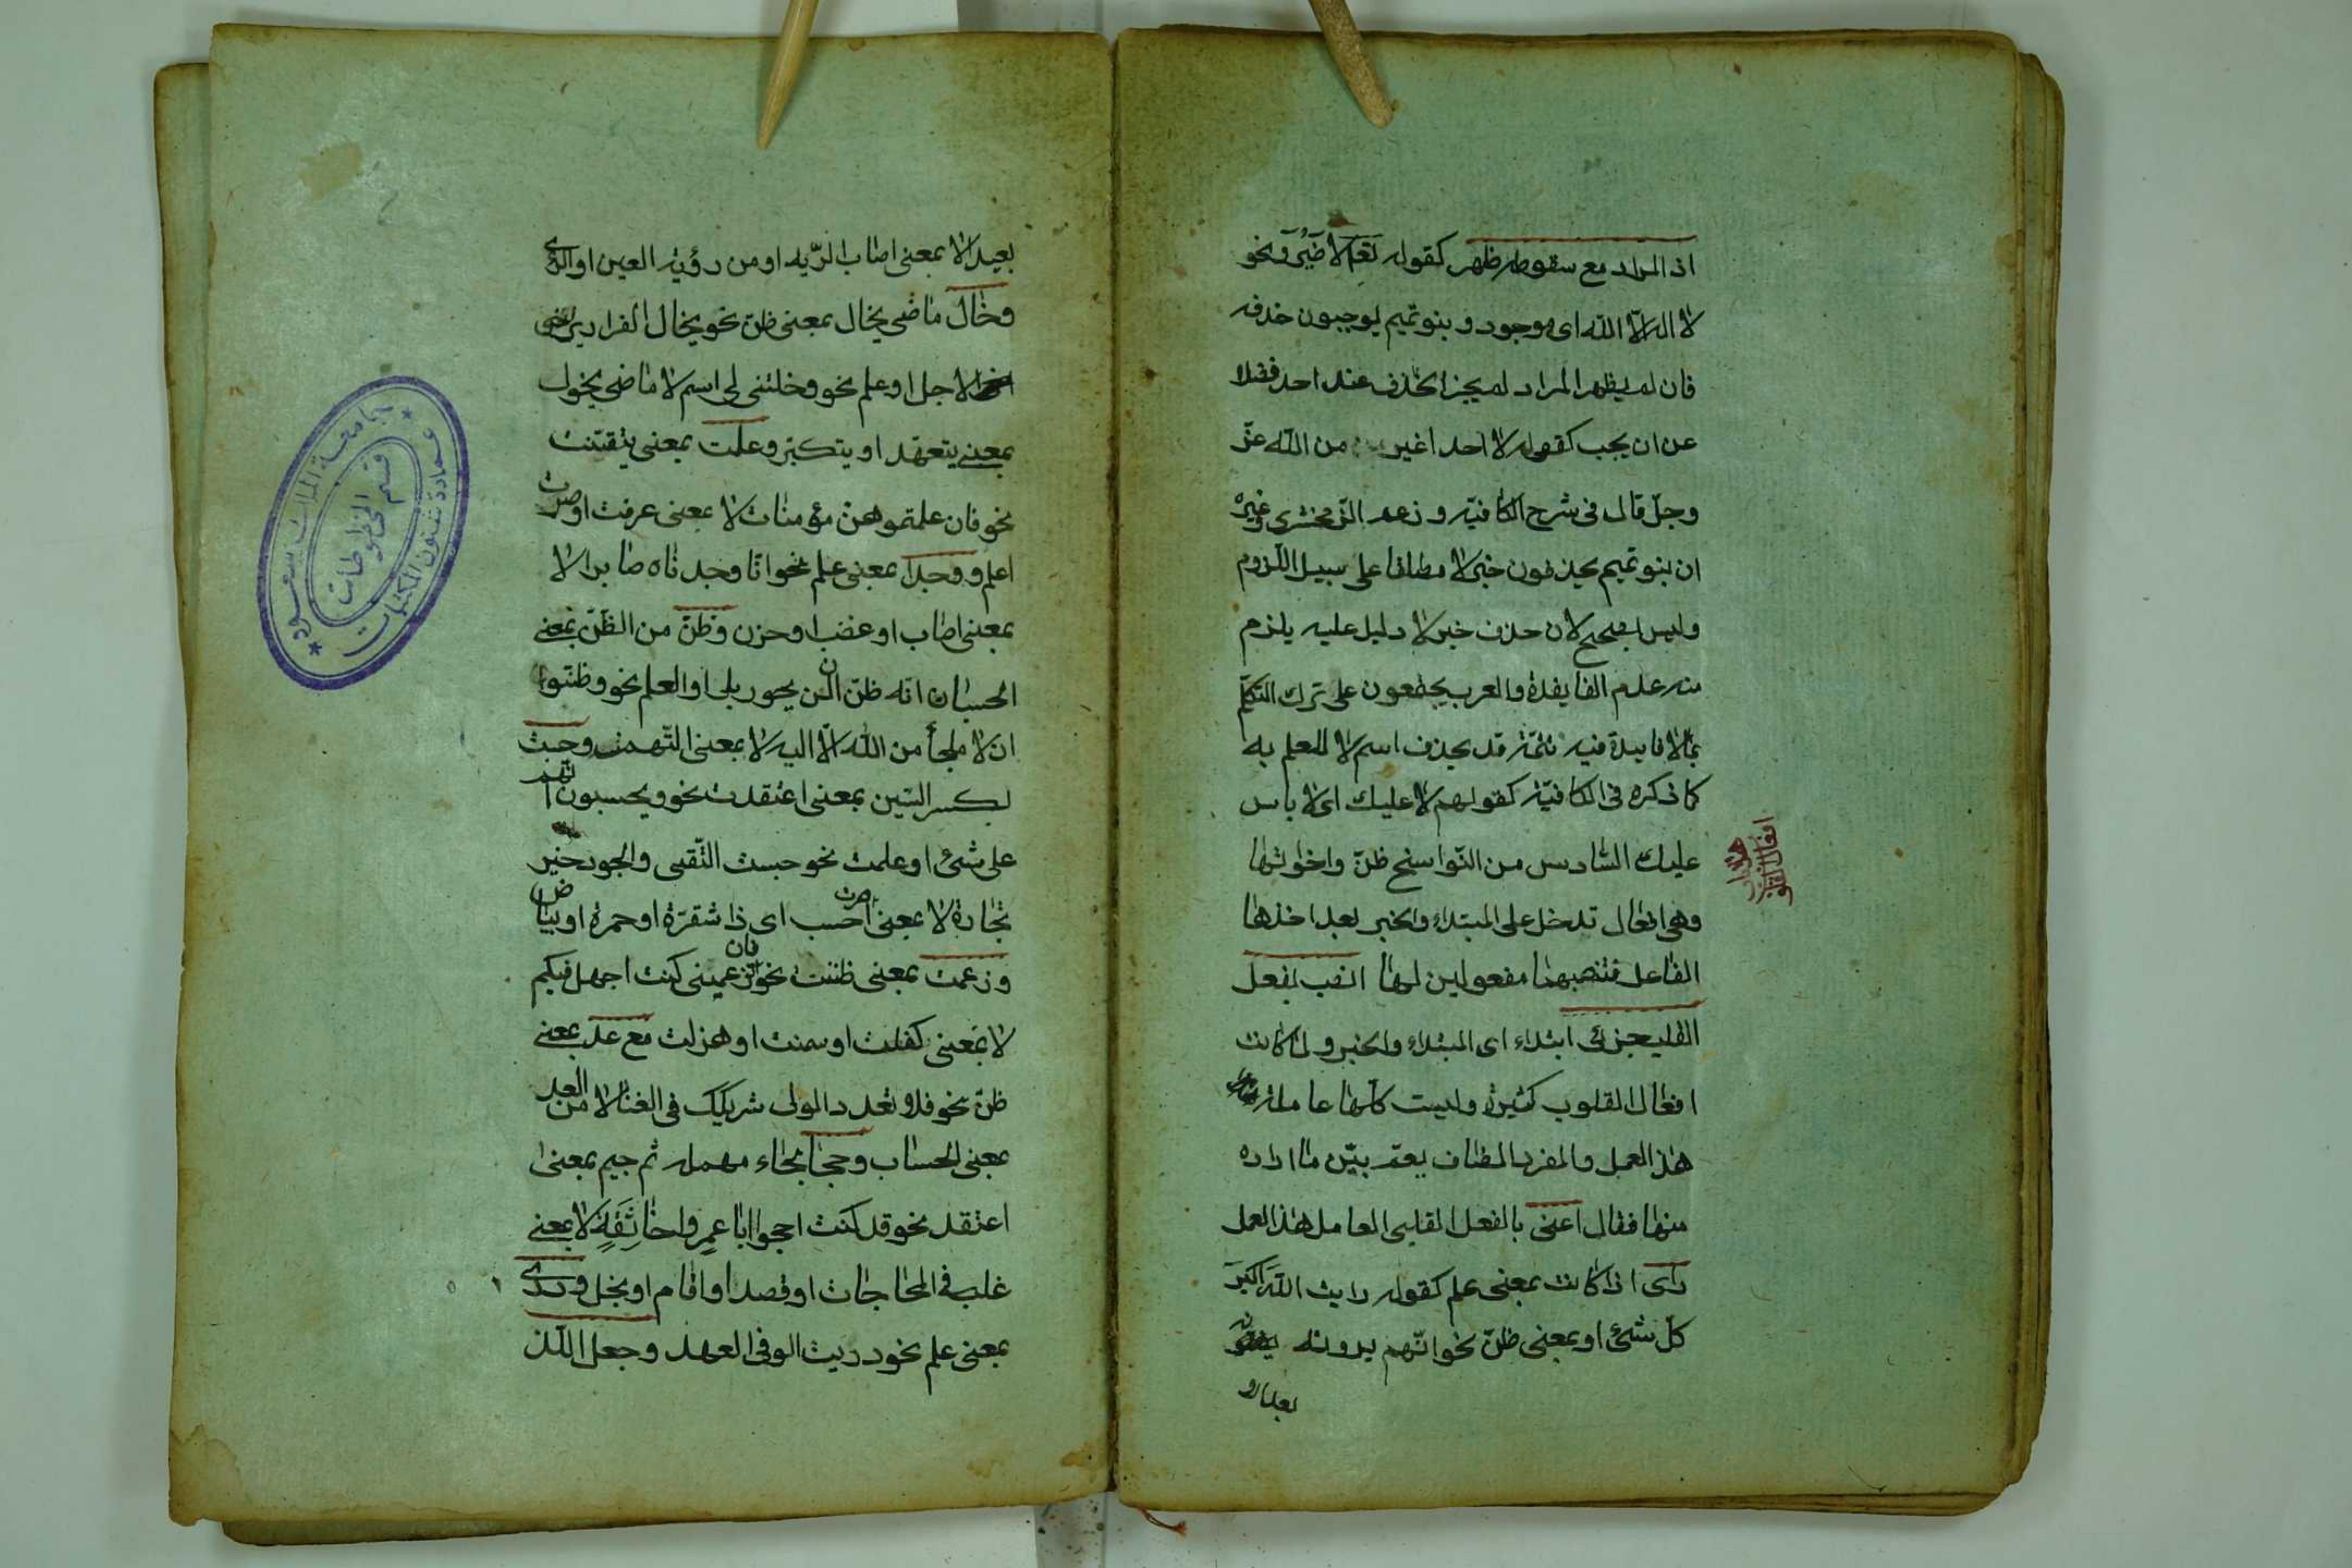 اذ المراد مع سقوطه ظهر كقوله تعالى لا ضَيْرَ ونحو
لا اله الا الله اى موجود وبنو تميم يوجبون حذفه
فان لم يظهر المراد لم يجز الحذف عند احد فضلا
عن ان يجب كقوله لا احد اغير من الله عزّ
وجلّ قال فى شرح الكافية وزعم الزّمخشرى وغيره
ان بنو تميم يحذفون خبر لا مطلقا على سبيل اللزوم
وليس بصحيح لان حذف خبر لا دليل عليه يلزم
منه عدم الفايدة والعرب يجمعون على ترك التكلّم
بما لا فايدة فيه تتمّة قد يحذف اسم لا للعلم به
كما ذكره فى الكافيّة كقولهم لا عليك اى لا باس
عليك السّادس من النّواسخ ظنّ واخواتها
وهى افعال تدخل على المبتداء والخبر بعد اخذها
الفاعل فتنصبهما مفعولين لها انصب بفعل
القلب جزئى ابتداء اى المبتداء والخبر ولما كانت
افعال القلوب كثيرة وليست كلّها عاملة
هذا العمل والمفرد المضاف يعمّ بيّن ما اراده
منها فقال اعنى بالفعل القلبى العامل هذا العمل
راى اذا كانت بمعنى علم كقوله رايت الله اكبر
كلّ شئ او بمعنى ظنّ نحو انّهم يرونه
بعيدا لا
افعال القلوب
بعيدا لا بمعنى اصاب الرّيه او من رؤية العين او الرأى
وخال ماضى يخال بمعنى ظنّ نحو يخال الفرار يراخى
الاجل او علم نحو وخلتنى لى اسم لا ماضى يخول
بمعنى يتعهّد او يتكبّر وعلمت بمعنى يتقنت
نحو فان علمتموهنّ مؤمنات لا بمعنى عرفت او صرت
اعلم ووجد بمعنى علم نحو انّا وجدناه صابرا لا
بمعنى اصاب او غضب او حزن وظنّ من الظنّ بمعنى
الحسبان انّه ظنّ ان لن يحور بلى او العلم نحو وظنّوا
ان لا ملجأ من الله الّا اليه لا بمعنى التّهمة وحسبت
بكسر السّين بمعنى اعتقدت نحو ويحسبون انّهم
على شئ او علمت نحو حسبت التّقى والجود خير
تجارة لا بمعنى صرت احسب اى ذا شقرة او حمرة او بياض
وزعمت بمعنى ظننت نحو فان تزعمينى كنت اجهل فيكم
لا بمعنى كفلت او سمنت او هزلت مع عدّ بمعنى
ظنّ نحو فلا تعدد المولى شريكك فى الغنا لا من العد
بمعنى الحساب وحجا بحاء مهمله ثم جيم بمعنى
اعتقد نحو قد كنت احجوا ابا عمرٍو اخا ثِقَةٍ لا بمعنى
غلب فى المحاجات او قصد او اقام او بخل ودرى
بمعنى علم نحو دريت الوفى العهد وجعل اللّذ
جامعة الملك سعود
عمادة شئون المكتبات
قسم المخطوطات